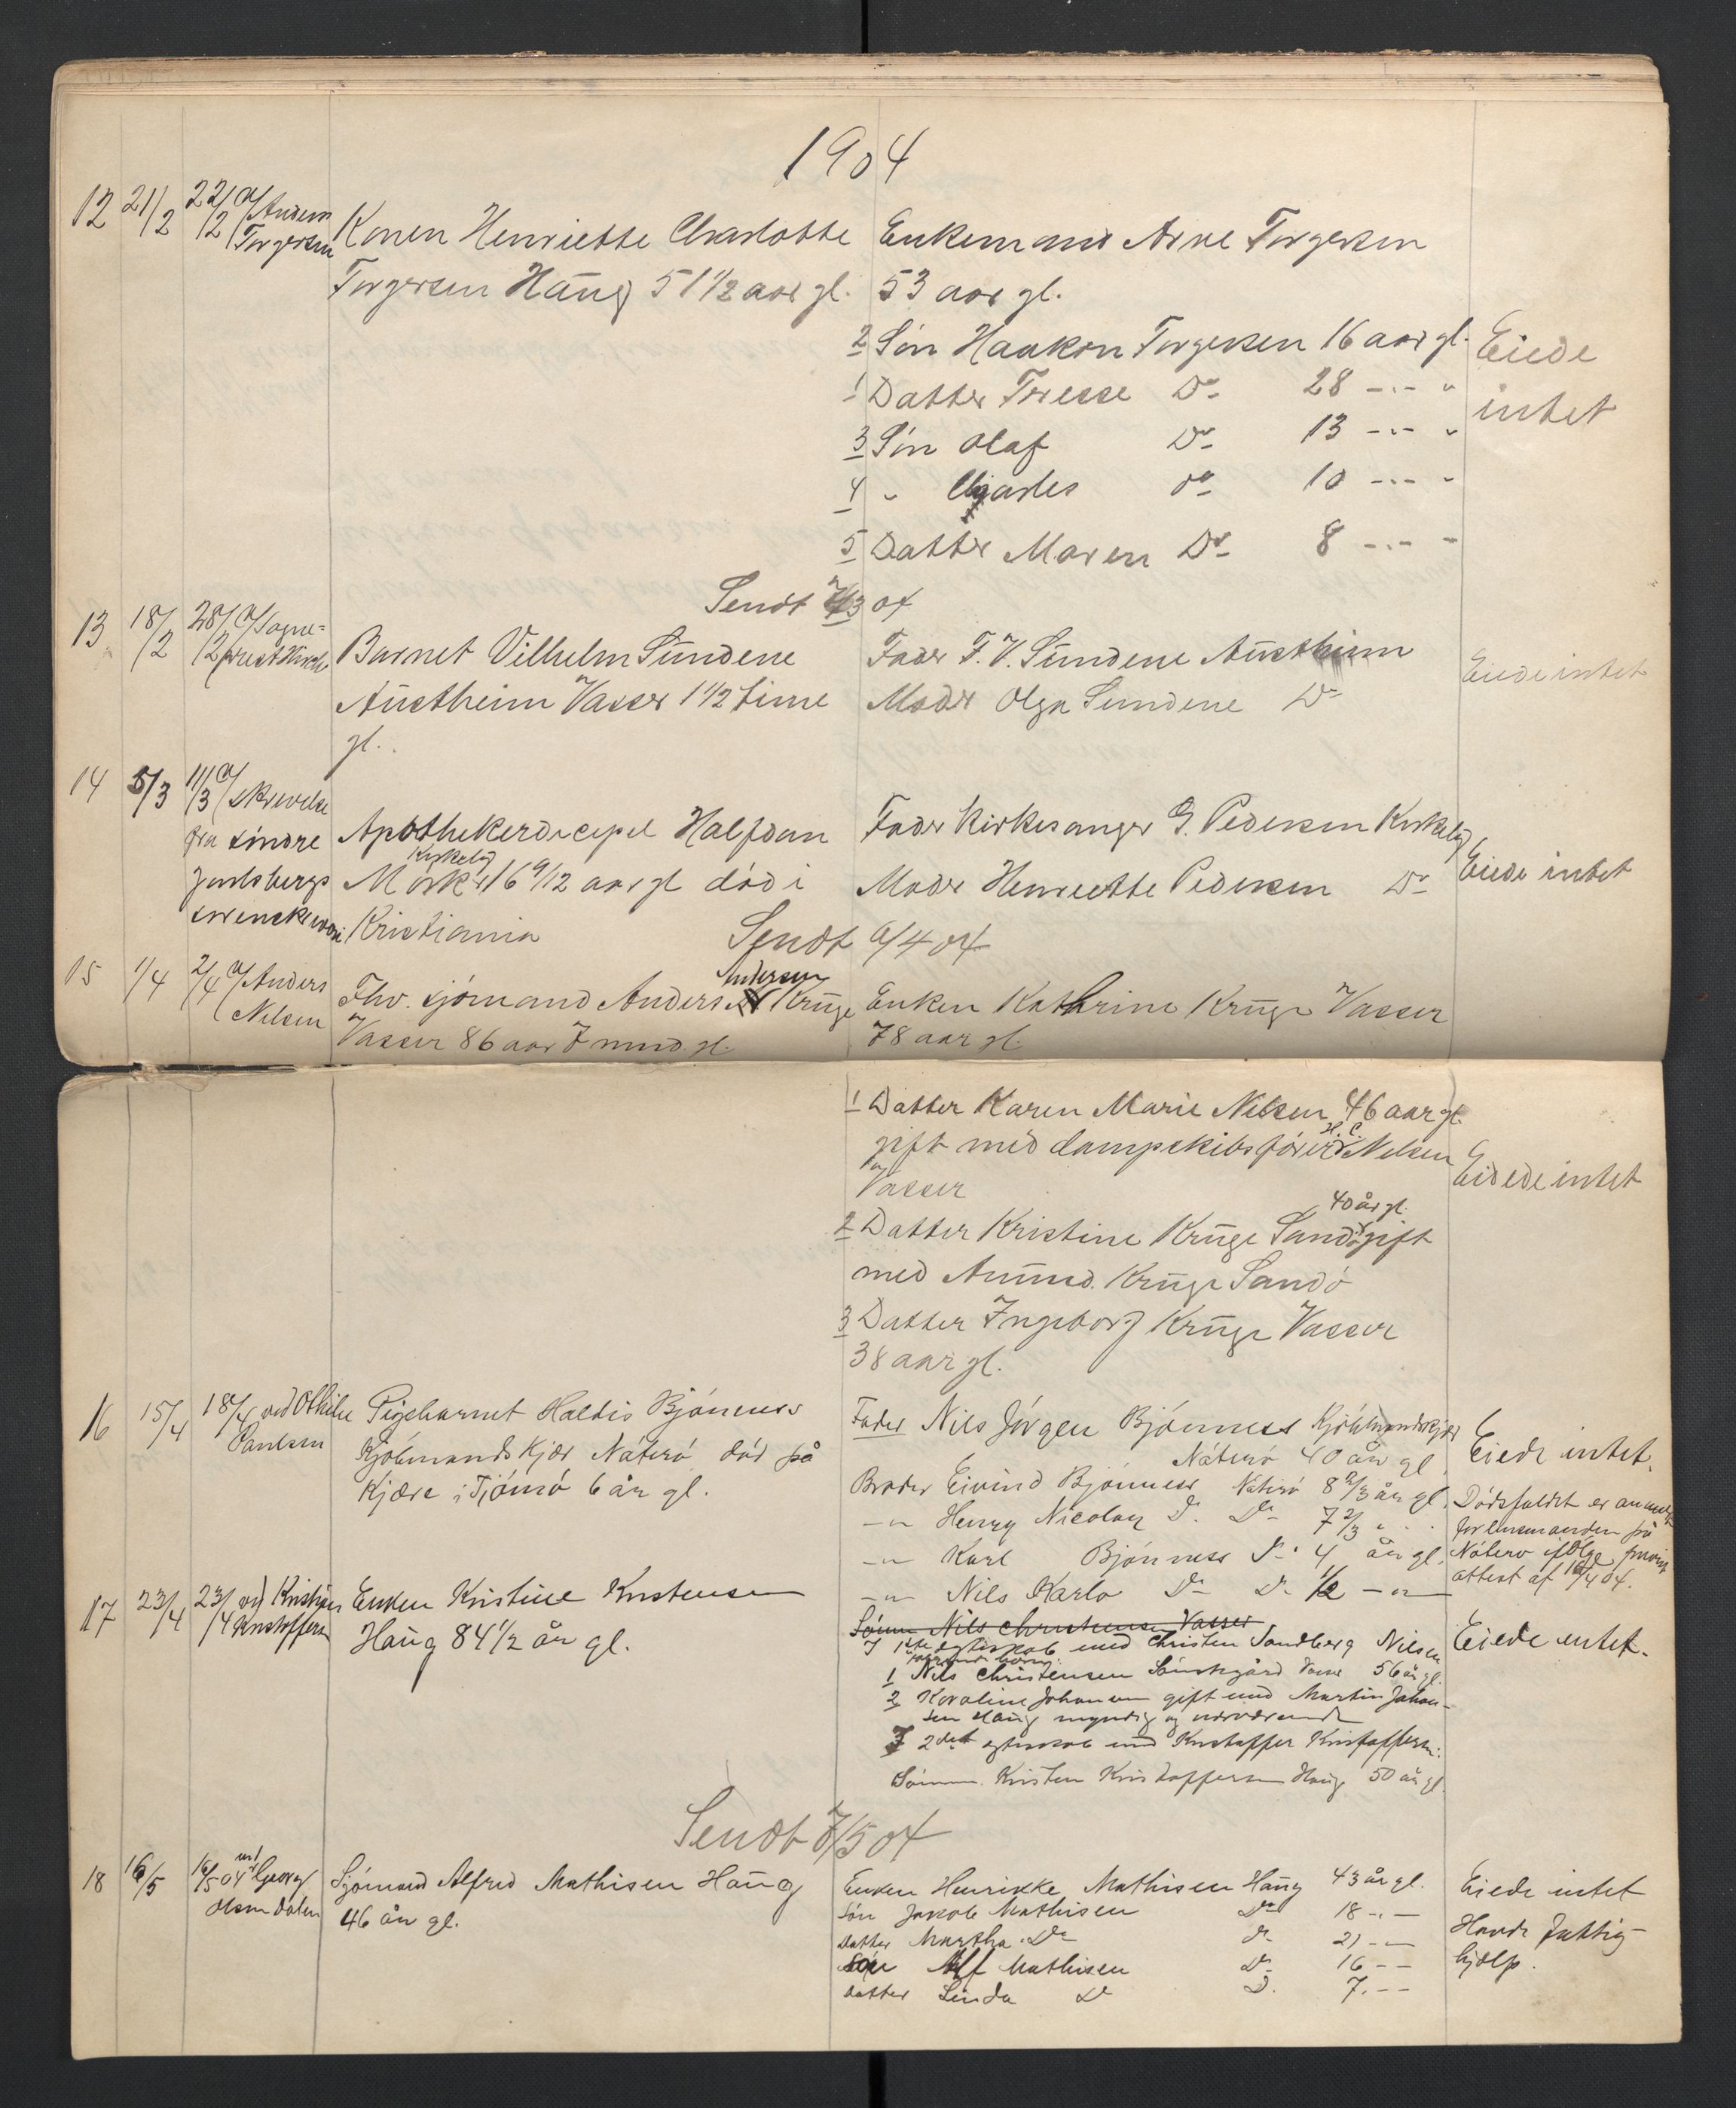 1904
12 21/2 22/2 a/ Anders
Torgersen
Konen Henriette Charlotte
Torgersen Haug 51 1/2 aar gl.
Enkemand Arne Torgersen
53 aar gl.
2 Søn Haakon Torgersen 16 aar gl.
1 Datter Tresse Do 28 -"- "
3 Søn Olaf Do 13 -"- "
4 " Charles do 10 -"- "
5 Datter Maren Do 8 -"- "
Eiede
intet
Sendt 2/3 04
13 18/2 28/2 a/ Sogne=
prest Kirch
Barnet Vilhelm Sundene
Austheim Vasser 1 1/2 time
gl.
Fader F. V. Sundene Austheim
Moder Olga Sundene Do
Eiede intet
14 5/3 11/3 a/ skrivelse
fra søndre
Jarlsbergs
sorenskriveri
Apothekerdicipel Halfdan
Mørk Kirkelig 16 9/12 aar gl død i
Kristiania
Fader Kirkesanger G. Pedersen Kirkelig
Moder Henriette Pedersen Do
Eiede intet
Sendt 9/4 04
15 1/4 2/4 a/ Anders
Nelsen
Fhv. sjømand Anders Andersen Kruge
Vasser 86 aar 7 mnd. gl.
Enken Kathrine Kruge Vasser
78 aar gl.
1 Datter Karen Marie Nelsen 46 aar gl.
gift med dampskibsfører H. C. Nelsen
Vasser
2 Datter Kristine Kruge Sandø 40 år gl. gift
med Amund. Kruge Sandø
3 Datter Ingeborg Kruge Vasser
38 aar gl.
Eiede intet
16 15/4 18/4 ved Othilie
Paulsen
Pigebarnet Haldis Bjønness
Kjøbmandskjær Nøterø død på
Kjære i Tjømø 6 år gl.
Fader Nils Jørgen Bjønness Kjøbmandskjær
Nøterø 40 år gl.
Broder Eivind Bjønness Nøterø 8 2/3 år gl.
-"- Henry Nicolay D. Do 7 2/3 " "
-"- Karl Bjønness Do 4 år gl.
-"- Nils Karlo Do Do 1/2 -"-
Eiede intet.
Dødsfaldet er anmeldt
for lensmanden på
Nøterø ifølge
attest af 16/4 04.
17 23/4 23/4 ved Kristian
Kristoffersen
Enken Kristine Kristensen
Haug 84 1/2 år gl.
Sønn Nils Christensen Vasser
I 1ste egteskab med Christen Sandberg Nilsen
1 Nils Christensen 56 år gl.
2 Karoline Johansen gift med Martin Johan-
sen Haug myndig og nærværende
I 2det egteskab med Kristoffer Kristoffersen:
Sønnen Kristen Kristoffersen Haug 50 år gl.
Eiede intet.
Sendt 7/5 04
18 16/5 16/5 04 ved Georg
Olsen Dalen
Sjømand Alfred Mathisen Haug
46 år gl.
Enken Henrikke Mathisen Haug 43 år gl.
Søn Jakob Mathisen Do 18 -"-
Datter Martha Do do 21 -"-
Søn Alf Mathisen Do 16 -"-
Datter Linda Do D. 7. -"-
Eiede intet
Havde fattig-
hjælp.